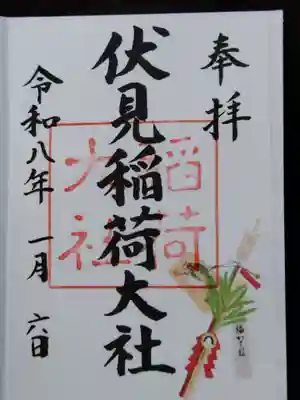 奉拝
伏見稲荷大社
令和八年 一月 六日
稲荷
大社